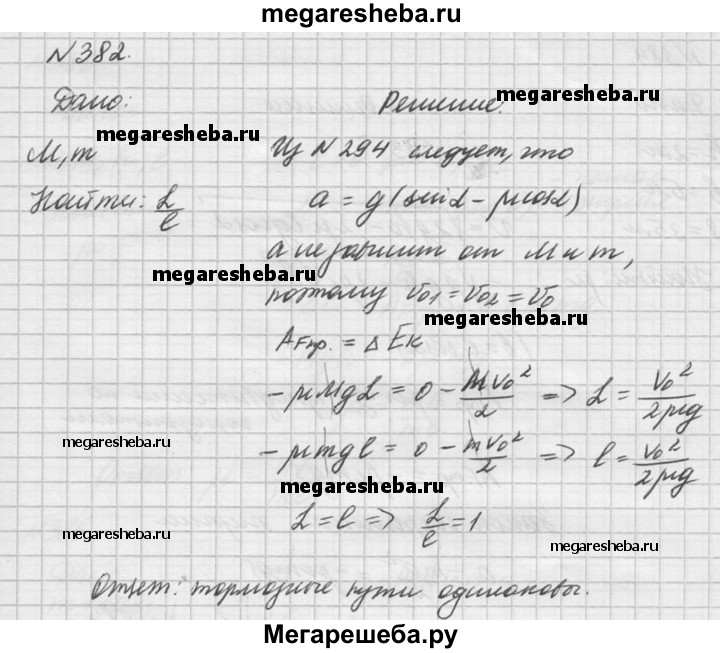 megaresheba.ru
N 382.
Дано: Решение: megaresheba.ru
megaresheba.ru
M, m Из N 294 следует, что
Найти: L/l a = g(sinα - μcosα)
a не зависит от M и m,
megaresheba.ru
поэтому v₀₁ = v₀₂ = v₀
megaresheba.ru
A_Fтр. = Δ Eк
- μMgL = 0 - Mv₀²/2 => L = v₀²/2μg
megaresheba.ru
- μmgl = 0 - mv₀²/2 => l = v₀²/2μg
megaresheba.ru
L = l => L/l = 1
megaresheba.ru
megaresheba.ru
Ответ: тормозные пути одинаковы.
Мегарешеба.ру